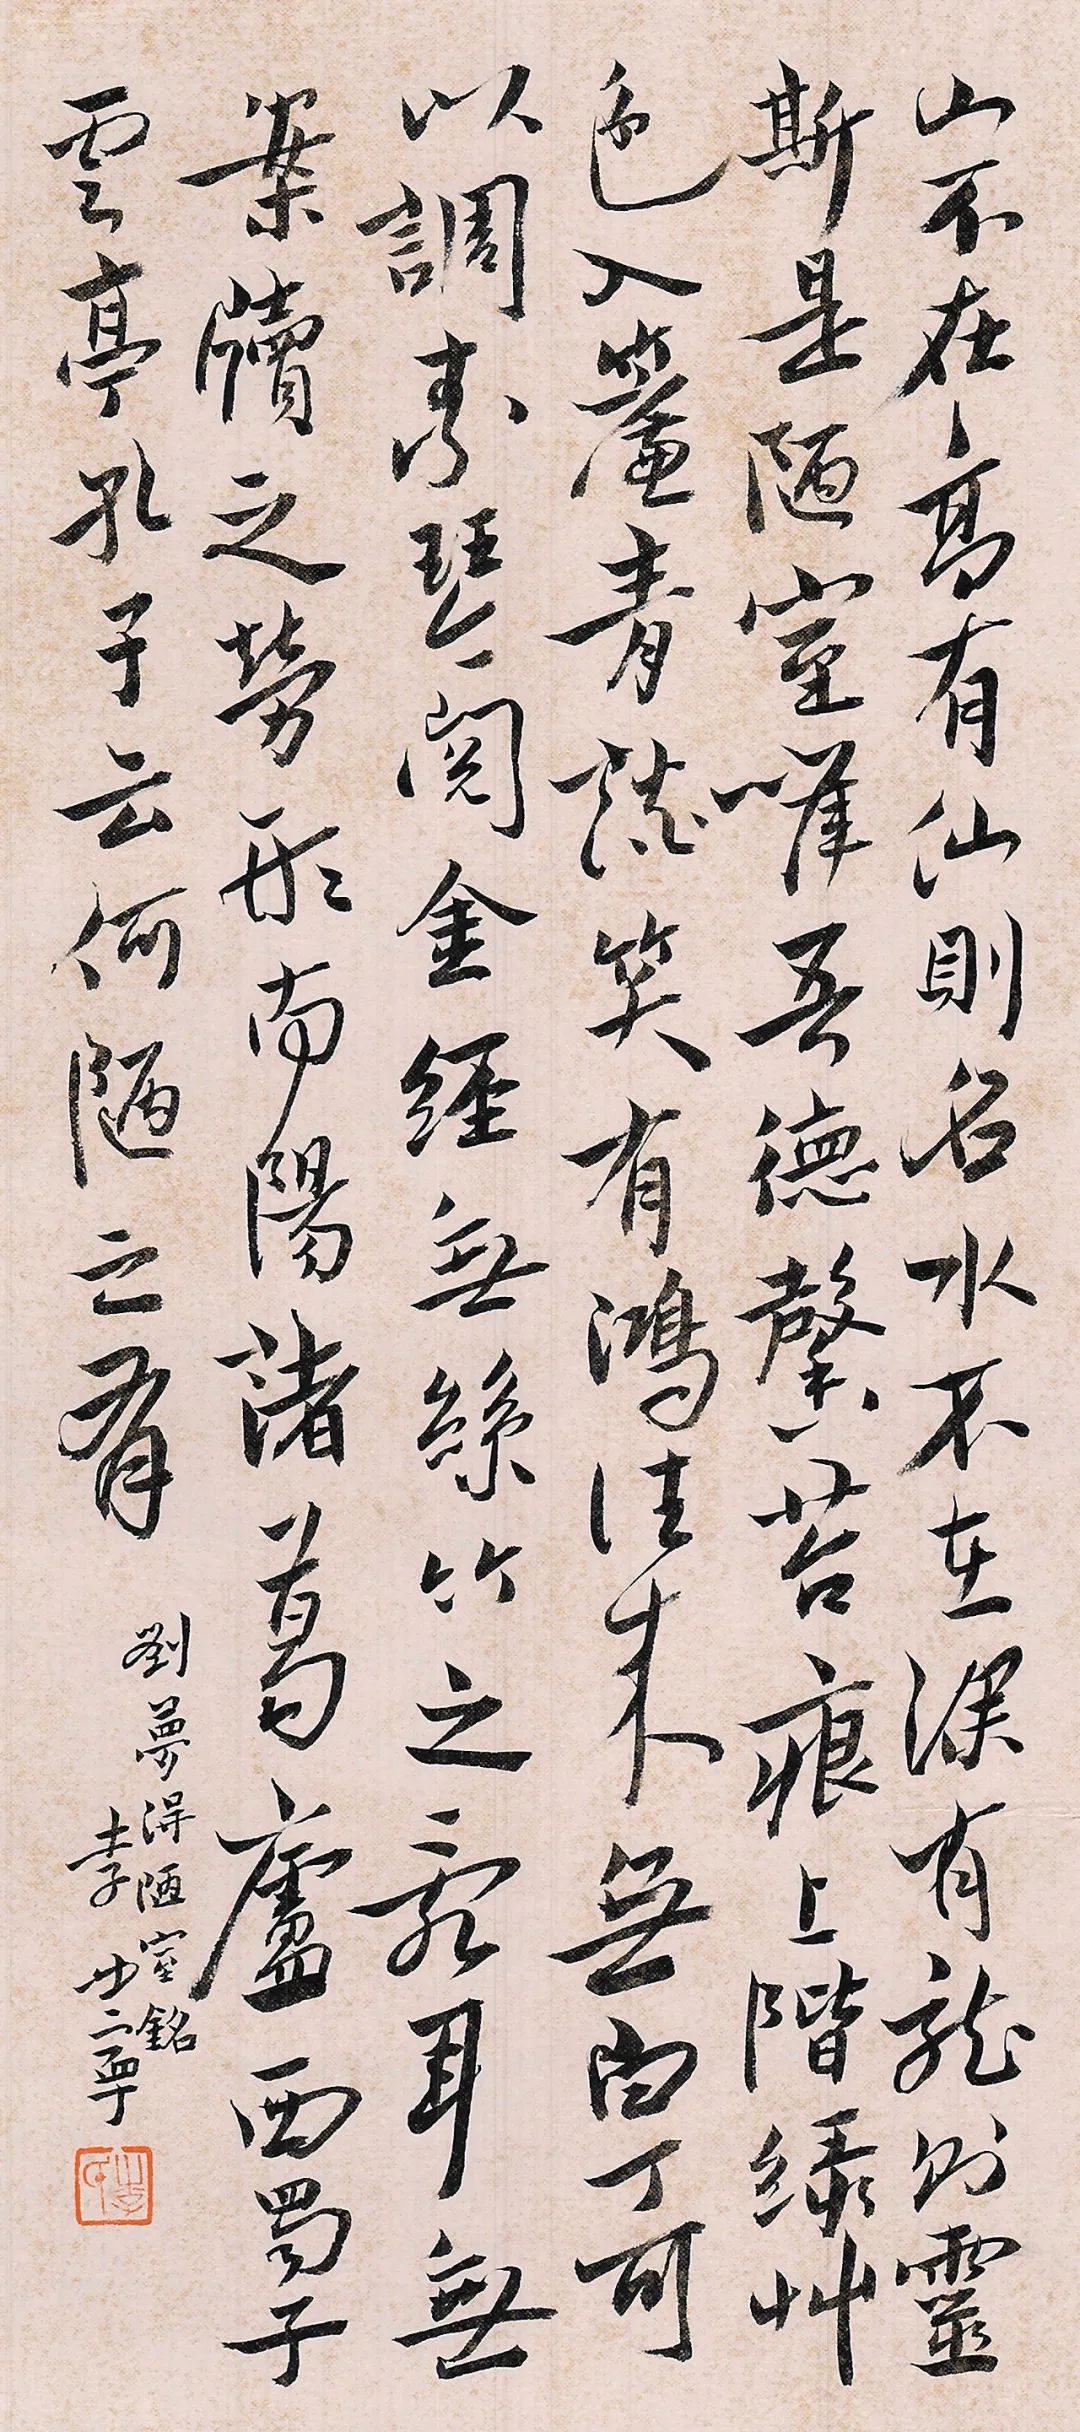 山不在高有仙則名水不在深有龍則靈
斯是陋室唯吾德馨苔痕上階緑艸
色入簾青談笑有鴻往来無白丁可
以調素琴閱金經無絲竹之亂耳無
案牘之勞形南陽諸葛廬西蜀子
雲亭孔子云何陋之有
劉夢得陋室銘
李